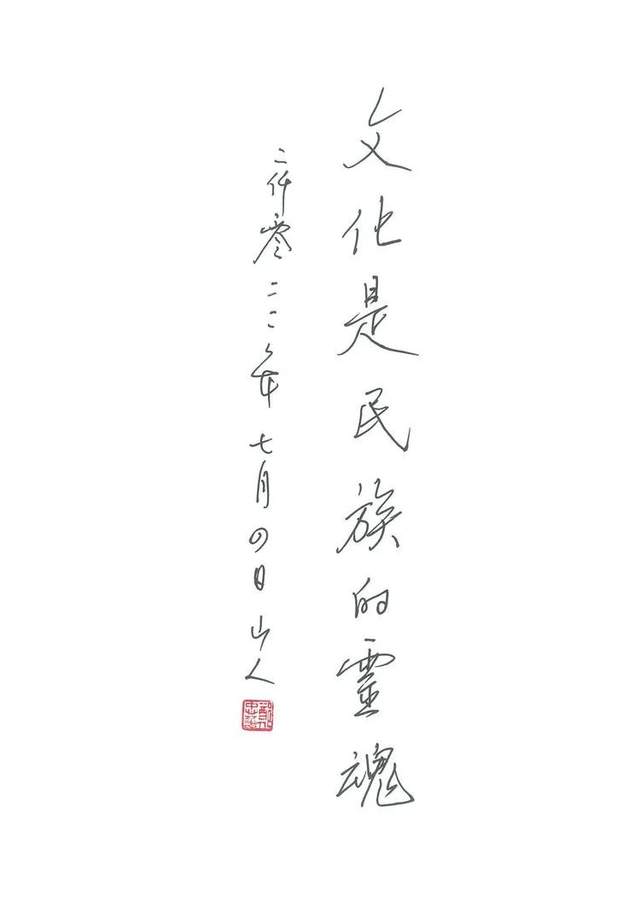 文化是民族的靈魂
二仟零二二年七月四日山人